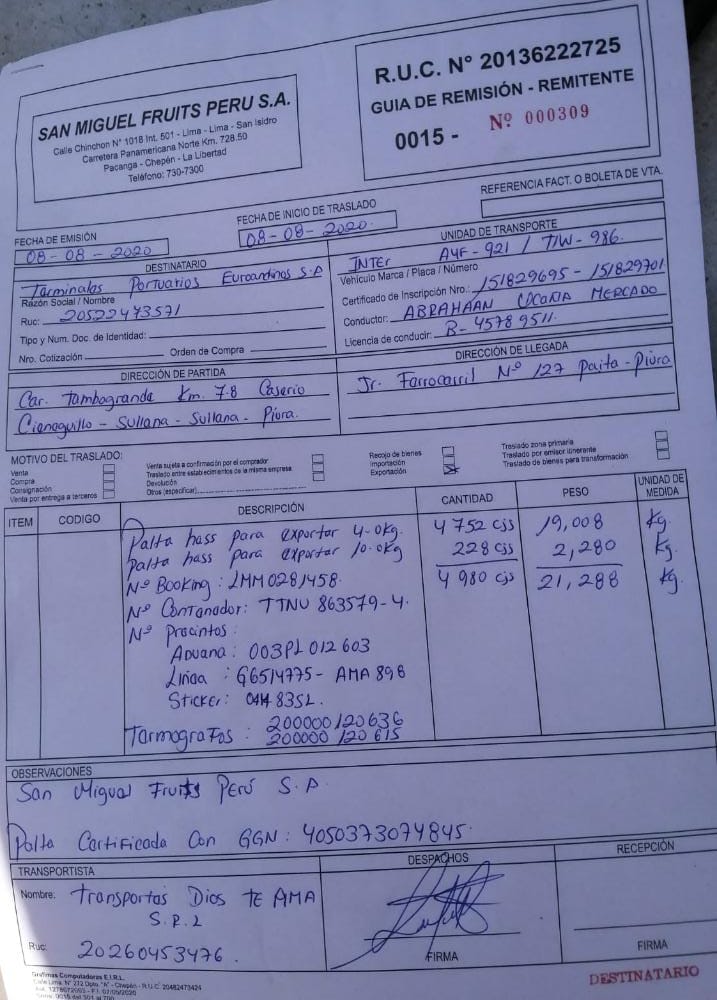 SAN MIGUEL FRUITS PERU S.A.
Calle Chinchon N° 1018 Int. 501 - Lima - Lima - San Isidro
Carretera Panamericana Norte Km. 728.50
Pacanga - Chepén - La Libertad
Teléfono: 730-7300
R.U.C. N° 20136222725
GUIA DE REMISIÓN - REMITENTE
0015 - Nº 000309
REFERENCIA FACT. O BOLETA DE VTA.
FECHA DE EMISIÓN
08-08-2020
FECHA DE INICIO DE TRASLADO
08-08-2020.
DESTINATARIO
Terminales Portuarios Euroandinos S.A
Razón Social / Nombre
Ruc: 20522473571
Tipo y Num. Doc. de Identidad:
Nro. Cotización Orden de Compra
UNIDAD DE TRANSPORTE
INTER A4F-921 / TIW-986.
Vehículo Marca / Placa / Número
Certificado de Inscripción Nro.: 151829695 - 151829701
Conductor: ABRAHAAN MERCADO
Licencia de conducir: B-45789511.
DIRECCIÓN DE PARTIDA
Car. Tambogrande Km. 7.8 Caserio
Cieneguillo - Sullana - Sullana - Piura.
DIRECCIÓN DE LLEGADA
Jr. Ferrocarril Nº 127 Paita - Piura
MOTIVO DEL TRASLADO:
Venta
Compra
Consignación
Venta por entrega a terceros
Venta sujeta a confirmación por el comprador
Traslado entre establecimientos de la misma empresa
Devolución
Otros (especificar)
Recojo de bienes
Importación
Exportación
Traslado zona primaria
Traslado por emisor itinerante
Traslado de bienes para transformación
ITEM CODIGO DESCRIPCIÓN CANTIDAD PESO UNIDAD DE MEDIDA
Palta hass para exportar 4.0kg. 4752 cjs 19,008 Kg.
Palta hass para exportar 10.0kg 228 cjs 2,280 Kg.
Nº Booking: LMM0281458. 4980 cjs 21,288 Kg.
Nº Contenedor: TTNU 863579-4.
Nº Precintos:
Aduana: 003PL012603
Linea: G6514775- AMA 898
Sticker: 8352.
200000120636
Termografos: 200000120615
OBSERVACIONES
San Miguel Fruits Perú S.A
Palta Certificada Con GGN: 4050373074845.
TRANSPORTISTA
Nombre: Transportes Dios TE AMA
S.R.L
Ruc: 20260453476.
DESPACHOS
FIRMA
RECEPCIÓN
FIRMA
Grafimas Computadoras E.I.R.L.
DESTINATARIO